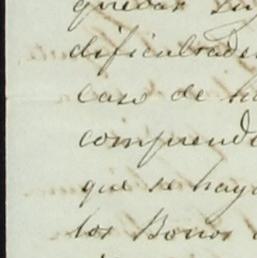 quedar su
dificultades
caso de h
comprende
que se haya
los Bonos